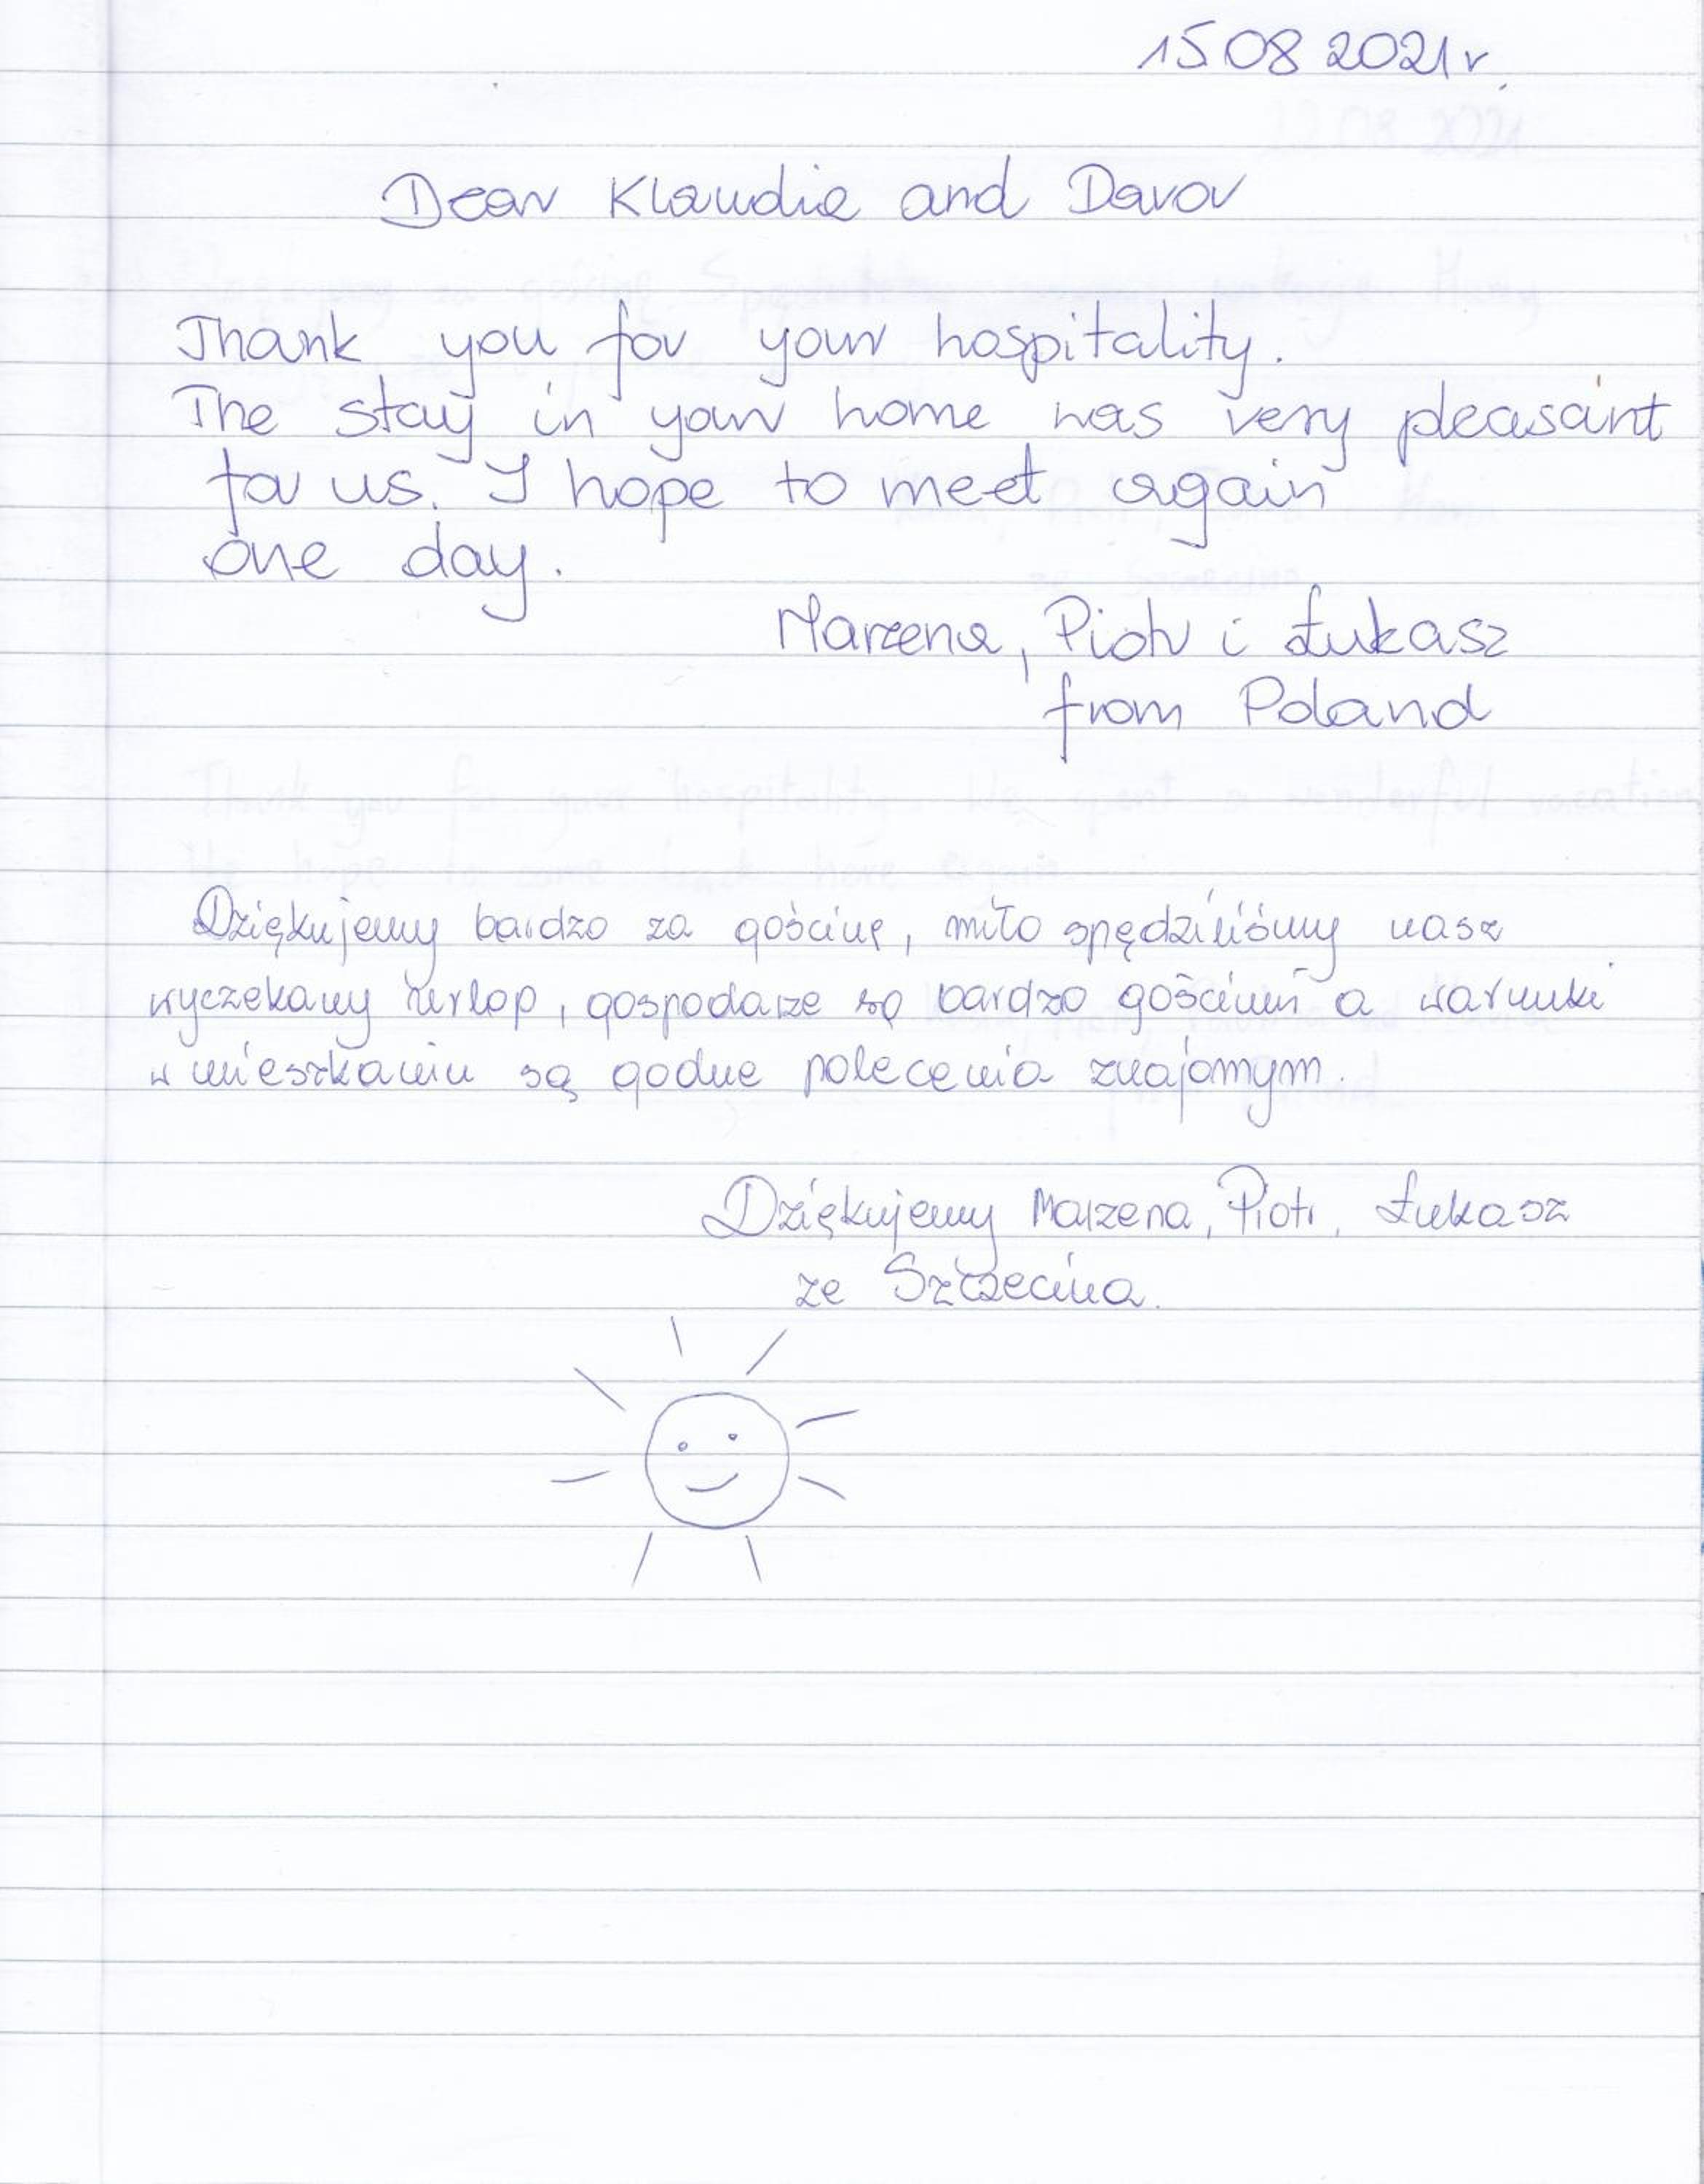 15.08 2021 r.
Dear Klaudia and Davor
Thank you for your hospitality.
The stay in your home was very pleasant
for us. I hope to meet again
one day.
Marzena, Piotr i Łukasz
from Poland
Dziękujemy bardzo za gościnę, miło spędziliśmy nasz
wyczekany urlop, gospodarze są bardzo gościnni a warunki
w mieszkaniu są godne polecenia znajomym.
Dziękujemy Marzena, Piotr, Łukasz
ze Szczecina.